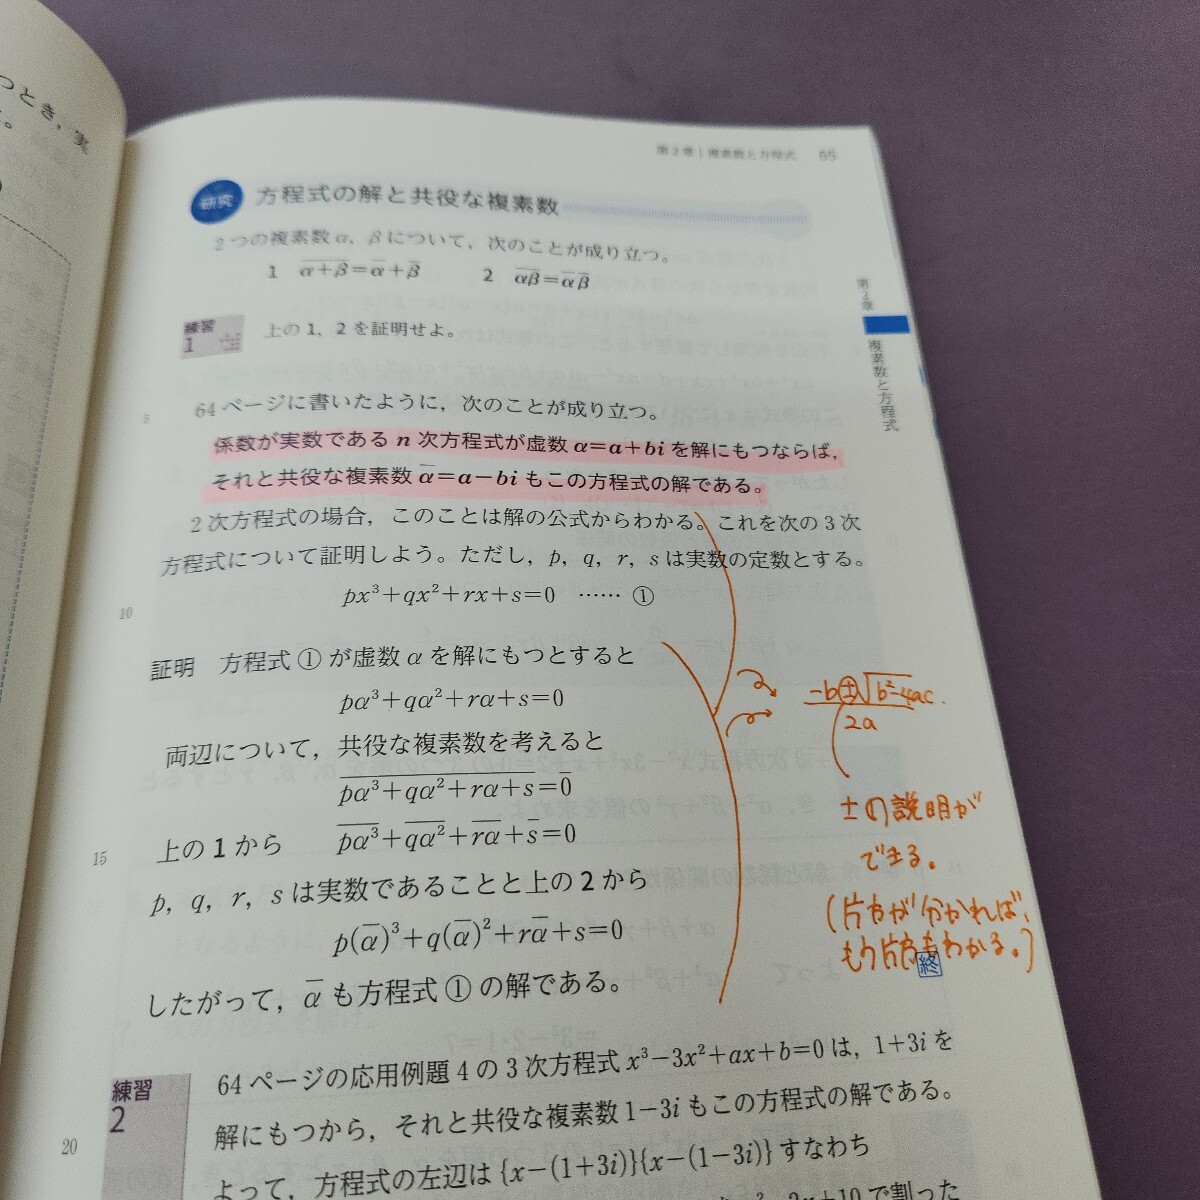 つとき，実
第2章｜複素数と方程式 65
研究 方程式の解と共役な複素数
2つの複素数α，βについて，次のことが成り立つ。
1 \overline{α+β}=\overline{α}+\overline{β}  2 \overline{αβ}=\overline{α}\overline{β}
練習 1 上の1，2を証明せよ。
第2章
複素数と方程式
5 64ページに書いたように，次のことが成り立つ。
係数が実数であるn次方程式が虚数α=a+biを解にもつならば，
それと共役な複素数\overline{α}=a-biもこの方程式の解である。
2次方程式の場合，このことは解の公式からわかる。これを次の3次
方程式について証明しよう。ただし，p，q，r，sは実数の定数とする。
10 px³+qx²+rx+s=0 ……①
証明 方程式①が虚数αを解にもつとすると
pα³+qα²+rα+s=0
両辺について，共役な複素数を考えると
\overline{pα³+qα²+rα+s}=\overline{0}
15 上の1から \overline{pα³}+\overline{qα²}+\overline{rα}+\overline{s}=0
p，q，r，sは実数であることと上の2から
p(\overline{α})³+q(\overline{α})²+r\overline{α}+s=0
したがって，\overline{α}も方程式①の解である。 終
-b±√b²-4ac
2a
±の説明が
できる.
(片方が分かれば,
もう片方もわかる.)
練習 2 64ページの応用例題4の3次方程式x³-3x²+ax+b=0は，1+3iを
20 解にもつから，それと共役な複素数1-3iもこの方程式の解である。
よって，方程式の左辺は{x-(1+3i)}{x-(1-3i)}すなわち
-2x+10で割った